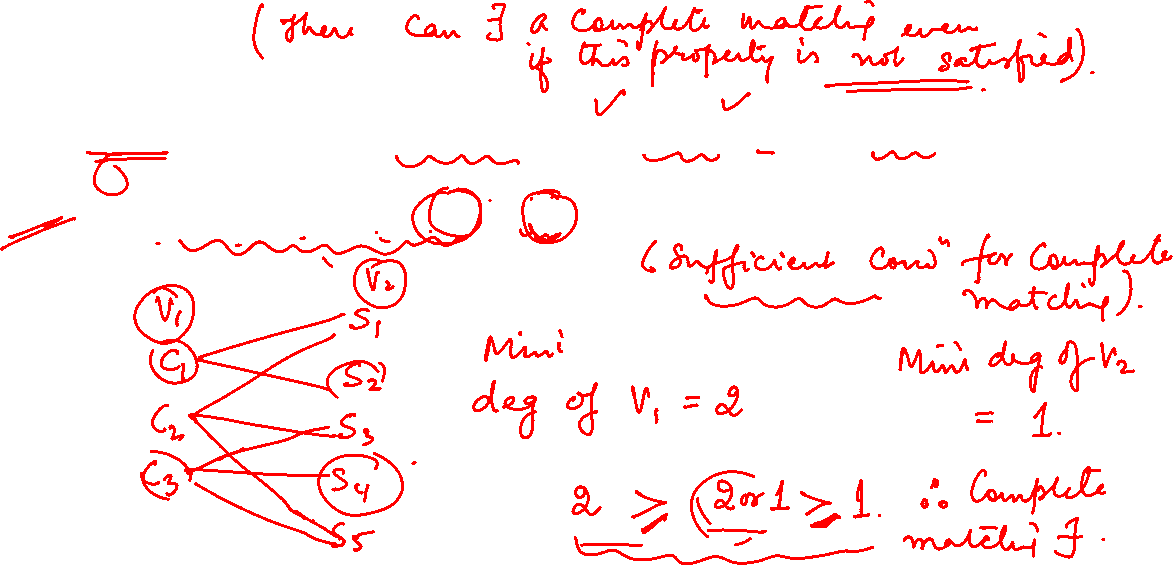 (There can ∃ a complete matching even
if this property is not satisfied).
(Sufficient condⁿ for complete
matching).
V₁ V₂
C₁ S₁
S₂
C₂ S₃
C₃ S₄
S₅
Mini
deg of V₁ = 2
Mini deg of V₂
= 1.
2 ≥ (2 or 1 ≥ 1. ∴ Complete
matching ∃.